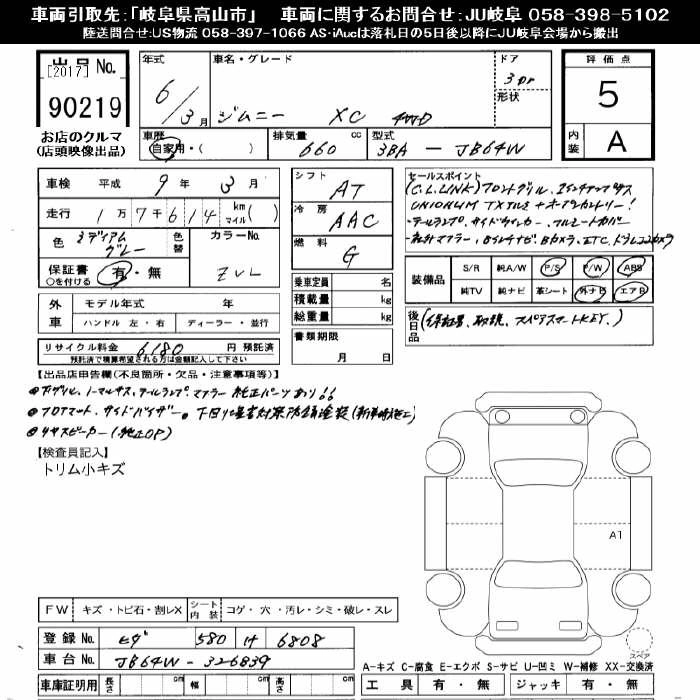 車両引取先:「岐阜県高山市」 車両に関するお問合せ:JU岐阜 058-398-5102
陸送問合せ:US物流 058-397-1066 AS・iAucは落札日の5日後以降にJU岐阜会場から搬出
出品No. [2017]
90219
お店のクルマ
(店頭映像出品)
年式 6/3月
車名・グレード ジムニー XC 4WD
ドア 3DR
形状
評価点 5
内装 A
車歴 自家用・( )
排気量 660 cc
型式 3BA-JB64W
車検 平成 9年 3月
走行 1万7千614 km マイル( )
色 ミディアムグレー 色替
カラーNo. ZVL
保証書 ○を付ける 有・無
外車 モデル年式 年
ハンドル 左・右 ディーラー・並行
リサイクル料金 6180 円 預託済
預託済で精算希望される方は金額記入して下さい
シフト AT
冷房 AAC
燃料 G
乗車定員 名
積載量 kg
総重量 kg
書類期限
月 日
セールスポイント
(C.L.LINK)フロントグリル、
・テールランプ、サイドウィンカー、
マフラー、 ナビ、Bカメラ、ETC、ドラレコ
装備品 S/R 純A/W P/S P/W ABS
純TV 純ナビ 革シート 外ナビ エアB
後日品 (保証書、取説、スペアスマートKEY、)
【出品店申告欄(不良箇所・欠品・注意事項等)】
●グリル、ノーマルサス、テールランプ、マフラー 純正パーツあり!!
●フロアマット、サイドバイザー。下回り塩害対策防錆塗装(新車時施工)
●リヤスピーカー(純正OP)
【検査員記入】
トリム小キズ
A1
スペア
FW キズ・トビ石・割レX シート内装 コゲ・穴・汚レ・シミ・破レ・スレ
登録No. ヒダ 580 け 6808
車台No. JB64W-326839
車庫証明用 長さ cm 幅 cm 高さ cm
A-キズ C-腐食 E-エクボ S-サビ U-凹ミ W-補修 XX-交換済
工具 有・無 ジャッキ 有・無